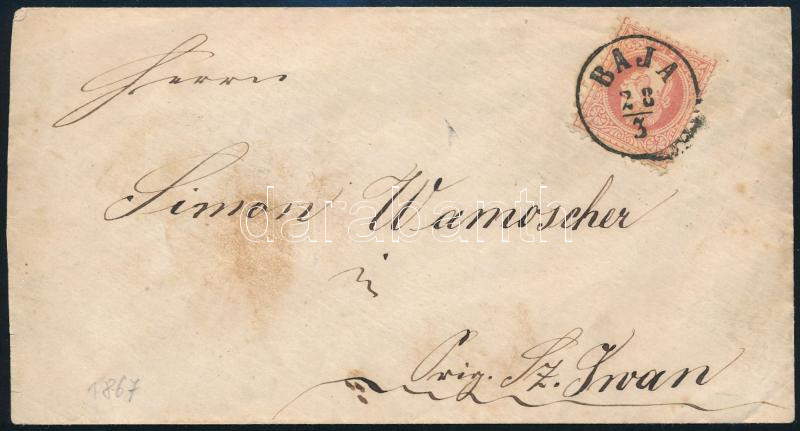 BAJA
28
3
Herrn
Simon Wamoscher
in
Sz. Iwan
darabanth
1867